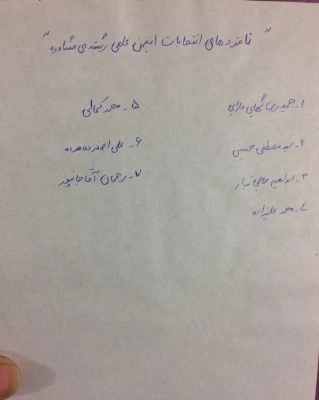 "نامزدهای انتخابات انجمن علمی رشته‌ی مشاوره"
۱- حمیدرضا
۲- سید مصطفی حسینی
۳- ابراهیم حاجی تبار
۴- محمد علیزاده
۵- محمد کمالی
۶- علی اصغر ده مرده
۷- رحمان آقاجانپور